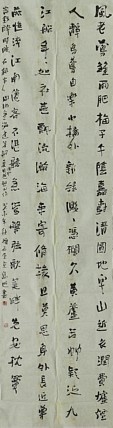 風老鶯雛雨肥梅子午陰嘉樹清圓地卑山近衣潤費爐煙
人靜烏鳶自樂小橋外新綠濺濺憑闌久黃蘆苦竹擬泛九
江船年年如社燕飄流瀚海來寄修椽且莫思身外長近尊
前憔悴江南倦客不堪聽急管繁絃歌筵畔先安枕簟
容我醉時眠